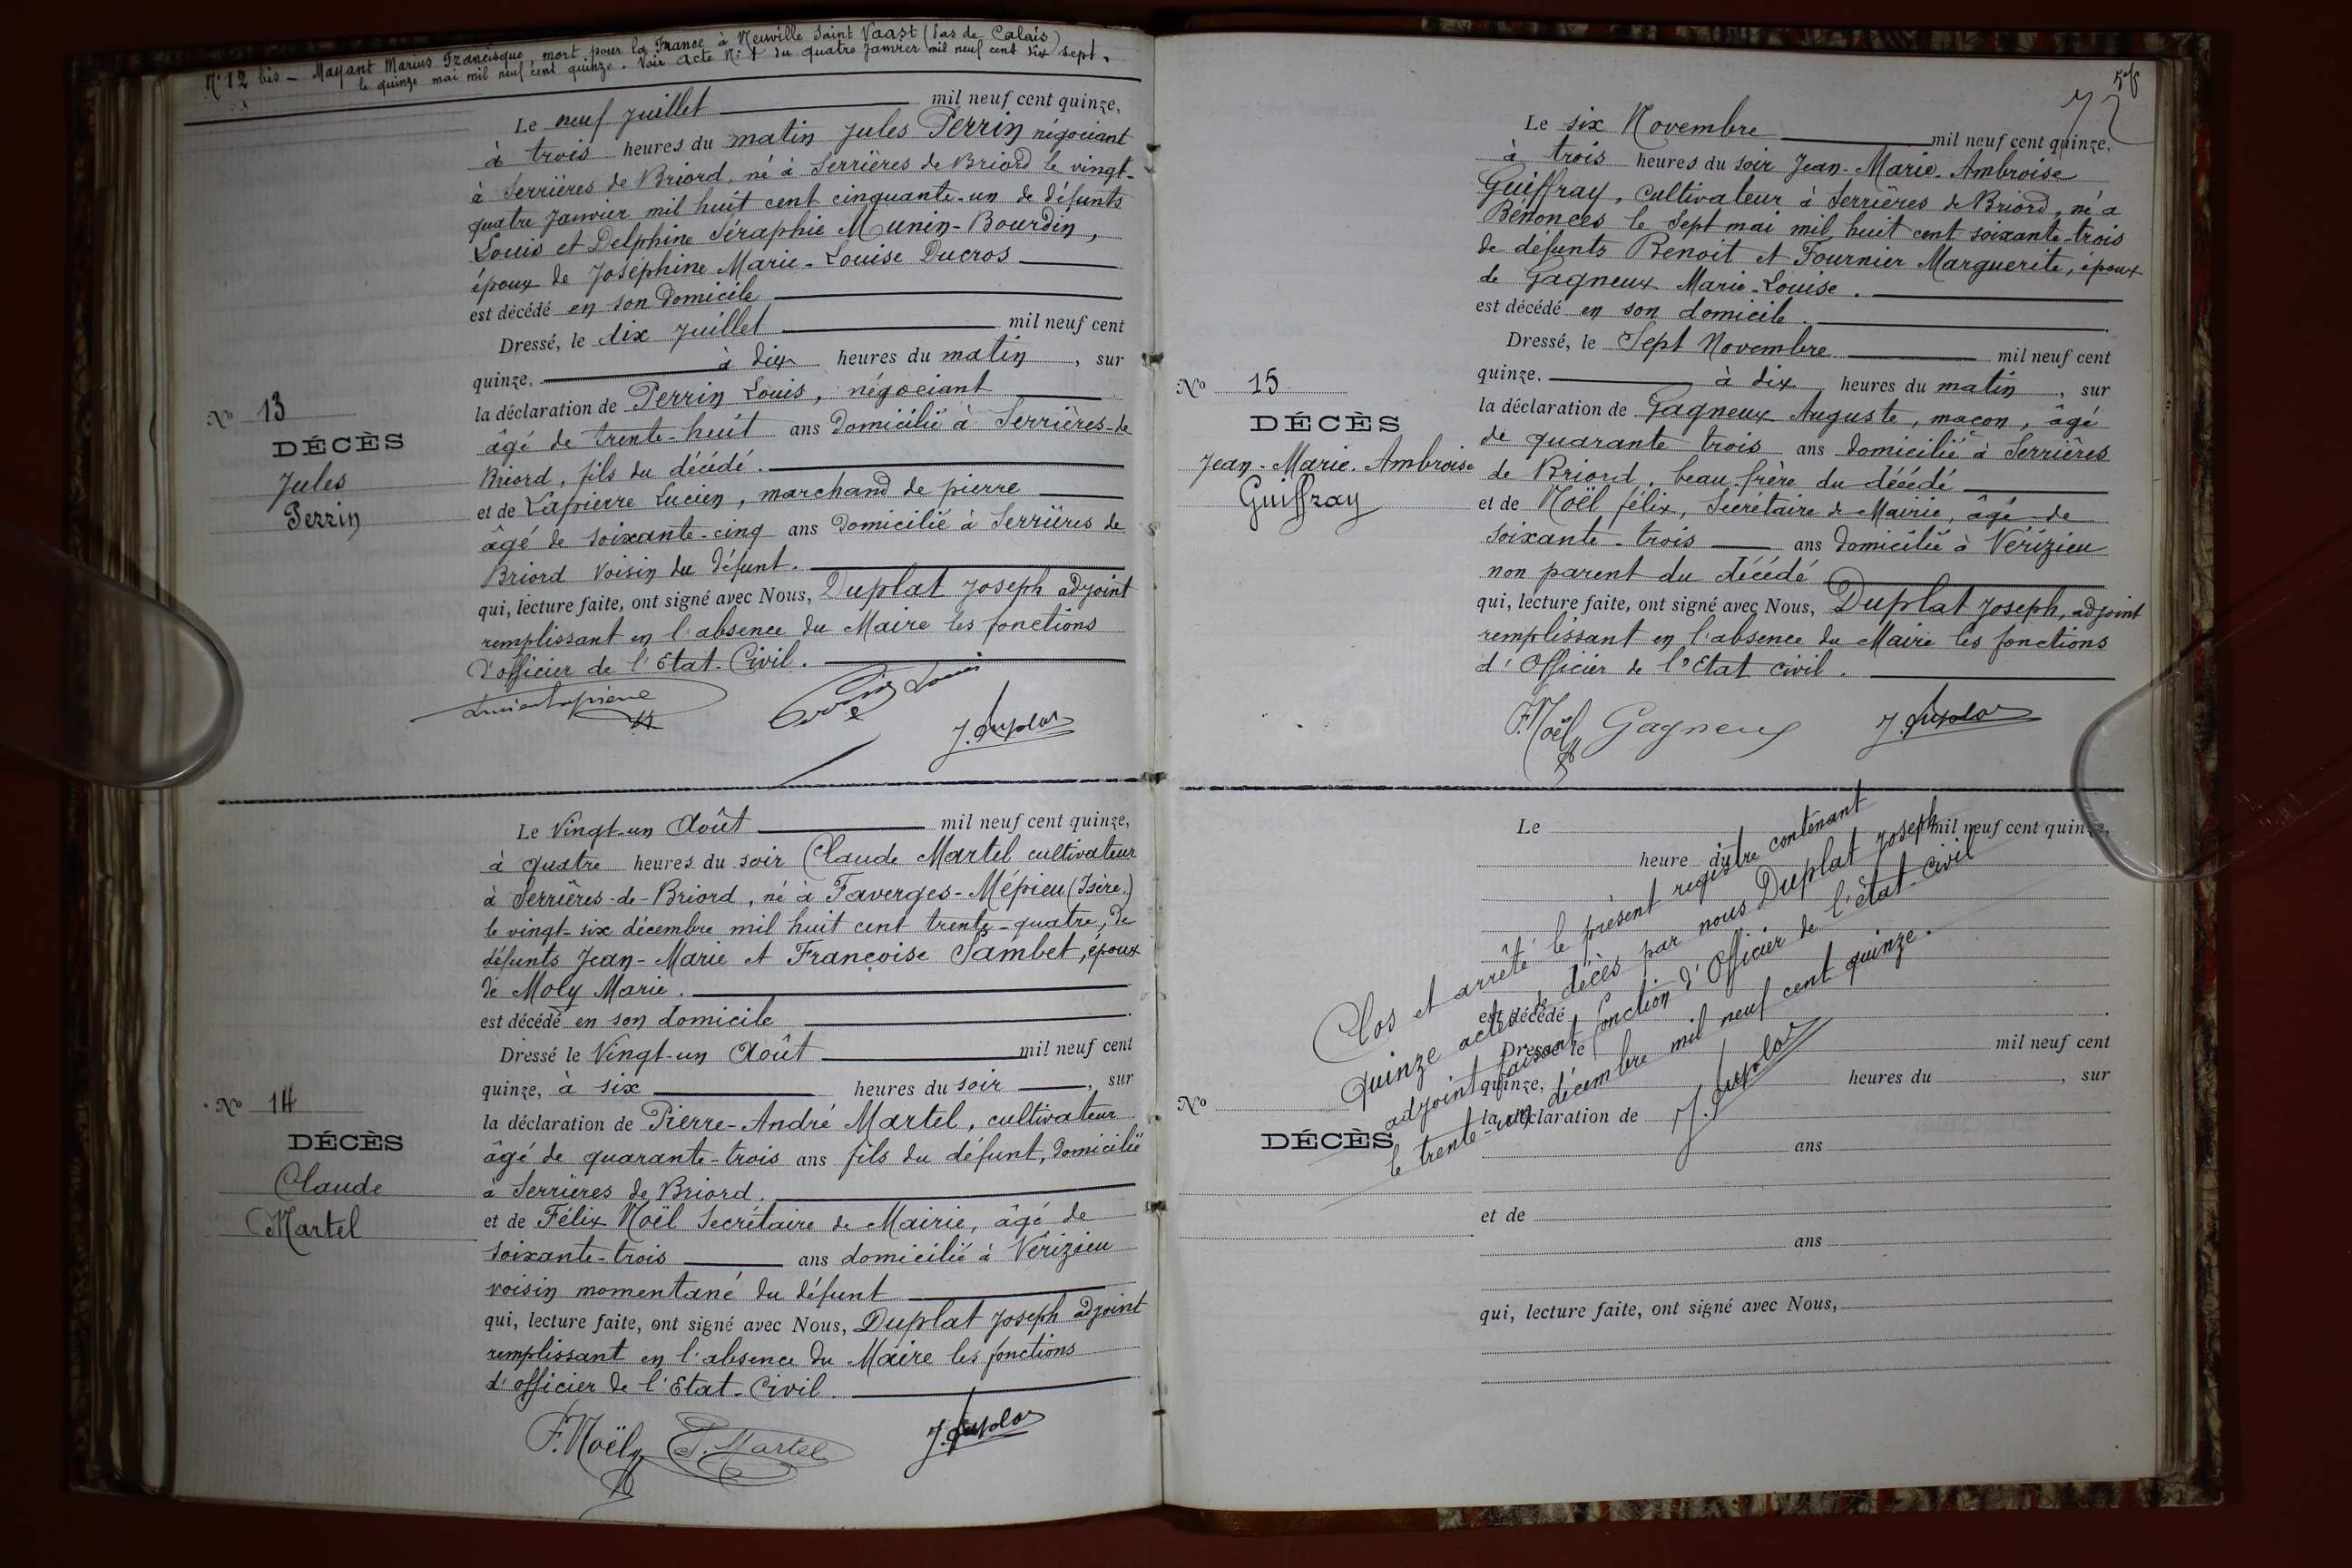 N° 12 bis - Mayant Marius Francisque, mort pour la France à Neuville Saint Vaast (Pas de Calais)
le quinze mai mil neuf cent quinze. Voir acte N° 1 du quatre Janvier mil neuf cent dix sept.
Le neuf Juillet mil neuf cent quinze,
à trois heures du matin Jules Perrin négociant
à Serrières de Briord, né à Serrières de Briord le vingt-
quatre Janvier mil huit cent cinquante-un de défunts
Louis et Delphine Séraphie Munin-Bourdin,
époux de Joséphine Marie-Louise Ducros
est décédé en son Domicile
Dressé, le dix Juillet mil neuf cent
quinze. à dix heures du matin, sur
la déclaration de Perrin Louis, négociant
âgé de trente-huit ans Domicilié à Serrières-de
Briord, fils du décédé.
et de Lapierre Lucien, marchand de pierre
âgé de soixante-cinq ans Domicilié à Serrières de
Briord voisin du défunt.
qui, lecture faite, ont signé avec Nous, Duplat Joseph adjoint
remplissant en l'absence du Maire les fonctions
d'officier de l'Etat-Civil.
N° 13
DÉCÈS
Jules
Perrin
Lucien Lapierre
Perrin Louis
J. Duplat
Le Vingt-un Août mil neuf cent quinze,
à quatre heures du soir Claude Martel cultivateur
à Serrières-de-Briord, né à Faverges-Mépieu (Isère.)
le vingt-six décembre mil huit cent trente-quatre, de
défunts Jean-Marie et Françoise Sambet, époux
de Moly Marie.
est décédé en son domicile
Dressé le Vingt-un Août mil neuf cent
quinze, à six heures du soir, sur
la déclaration de Pierre-André Martel, cultivateur
âgé de quarante-trois ans fils du défunt, domicilié
à Serrières de Briord.
et de Félix Noël Secrétaire de Mairie, âgé de
soixante-trois ans domicilié à Vérizieu
voisin momentané du défunt
qui, lecture faite, ont signé avec Nous, Duplat Joseph adjoint
remplissant en l'absence du Maire les fonctions
d'officier de l'Etat-Civil.
N° 14
DÉCÈS
Claude
Martel
F. Noël
P. Martel
J. Duplat
72
Le six Novembre mil neuf cent quinze,
à trois heures du soir Jean-Marie-Ambroise
Guiffray, cultivateur à Serrières de Briord, né à
Bénonces le sept mai mil huit cent soixante-trois
de défunts Benoit et Fournier Marguerite, époux
de Gagneux Marie-Louise.
est décédé en son domicile.
Dressé, le Sept Novembre mil neuf cent
quinze. à dix heures du matin, sur
la déclaration de Gagneux Auguste, maçon, âgé
de quarante trois ans domicilié à Serrières
de Briord, beau-frère du décédé
et de Noël félix, Secrétaire de Mairie, âgé de
soixante-trois ans domicilié à Vérizieu
non parent du décédé
qui, lecture faite, ont signé avec Nous, Duplat Joseph, adjoint
remplissant en l'absence du Maire les fonctions
d'Officier de l'Etat civil.
N° 15
DÉCÈS
Jean-Marie-Ambroise
Guiffray
F. Noël
Gagneux
J. Duplat
Le mil neuf cent quinze,
heure du
est décédé
Dressé le mil neuf cent
quinze, heures du , sur
la déclaration de
ans
et de
ans
qui, lecture faite, ont signé avec Nous,
N°
DÉCÈS
Clos et arrêté le présent registre contenant
quinze actes de décès par nous Duplat Joseph
adjoint faisant fonction d'Officier de l'état-civil
le trente-un décembre mil neuf cent quinze.
J. Duplat